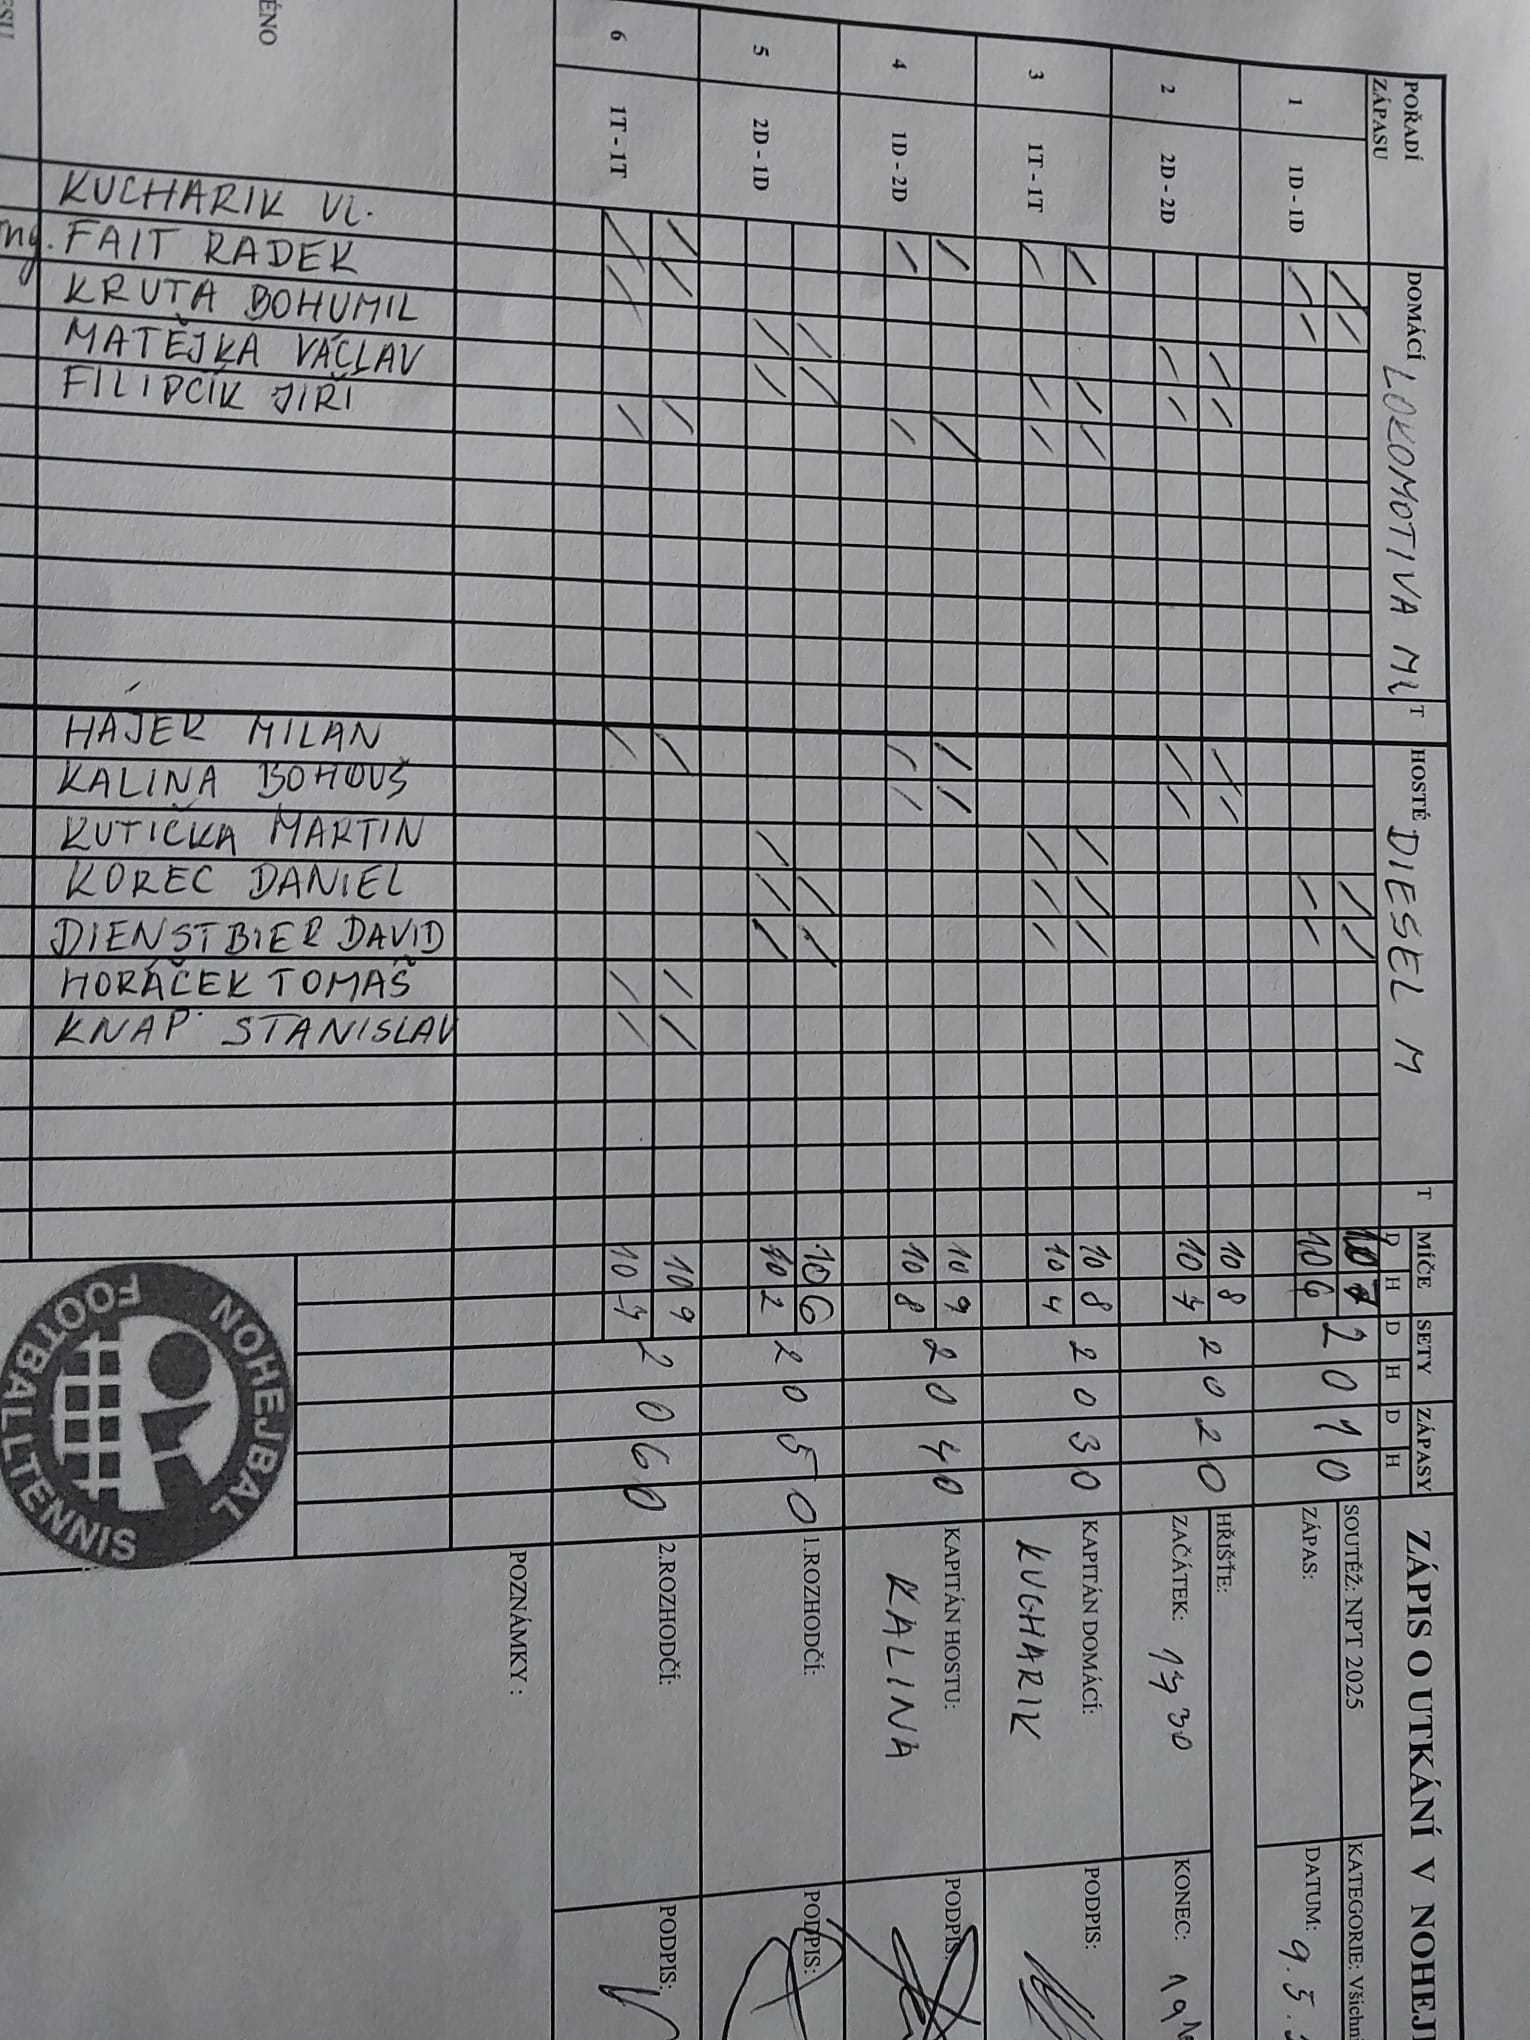 ZÁPIS O UTKÁNÍ V NOHEJ
SOUTĚŽ: NPT 2025
KATEGORIE: Všichni
ZÁPAS:
DATUM: 9.5.
HŘIŠTE:
ZAČÁTEK: 17 30
KONEC:
KAPITÁN DOMÁCÍ:
KUCHARIK
PODPIS:
KAPITÁN HOSTU:
KALINA
PODPIS:
1.ROZHODČÍ:
PODPIS:
2.ROZHODČÍ:
PODPIS:
POZNÁMKY :
POŘADÍ ZÁPASU
DOMÁCÍ LOKOMOTIVA Ml T
HOSTÉ DIESEL M T
MÍČE SETY ZÁPASY
D H D H D H
1 1D - 1D 10 7 2 0 1 0
10 6
2 2D - 2D 10 8 2 0 2 0
10 7
3 1T - 1T 10 8 2 0 3 0
10 4
4 1D - 2D 10 9 2 0 4 0
10 8
5 2D - 1D 10 6 2 0 5 0
10 2
6 1T - 1T 10 9 2 0 6 0
10 7
KUCHARIK Vl.
Ing. FAIT RADEK
KRUTA BOHUMIL
MATĚJKA VÁCLAV
FILIPČÍK JIŘÍ
HÁJEK MILAN
KALINA BOHOUŠ
KUTIČKA MARTIN
KOREC DANIEL
DIENSTBIER DAVID
HORÁČEK TOMÁŠ
KNAP STANISLAV
NOHEJBAL
FOOTBALLTENNIS